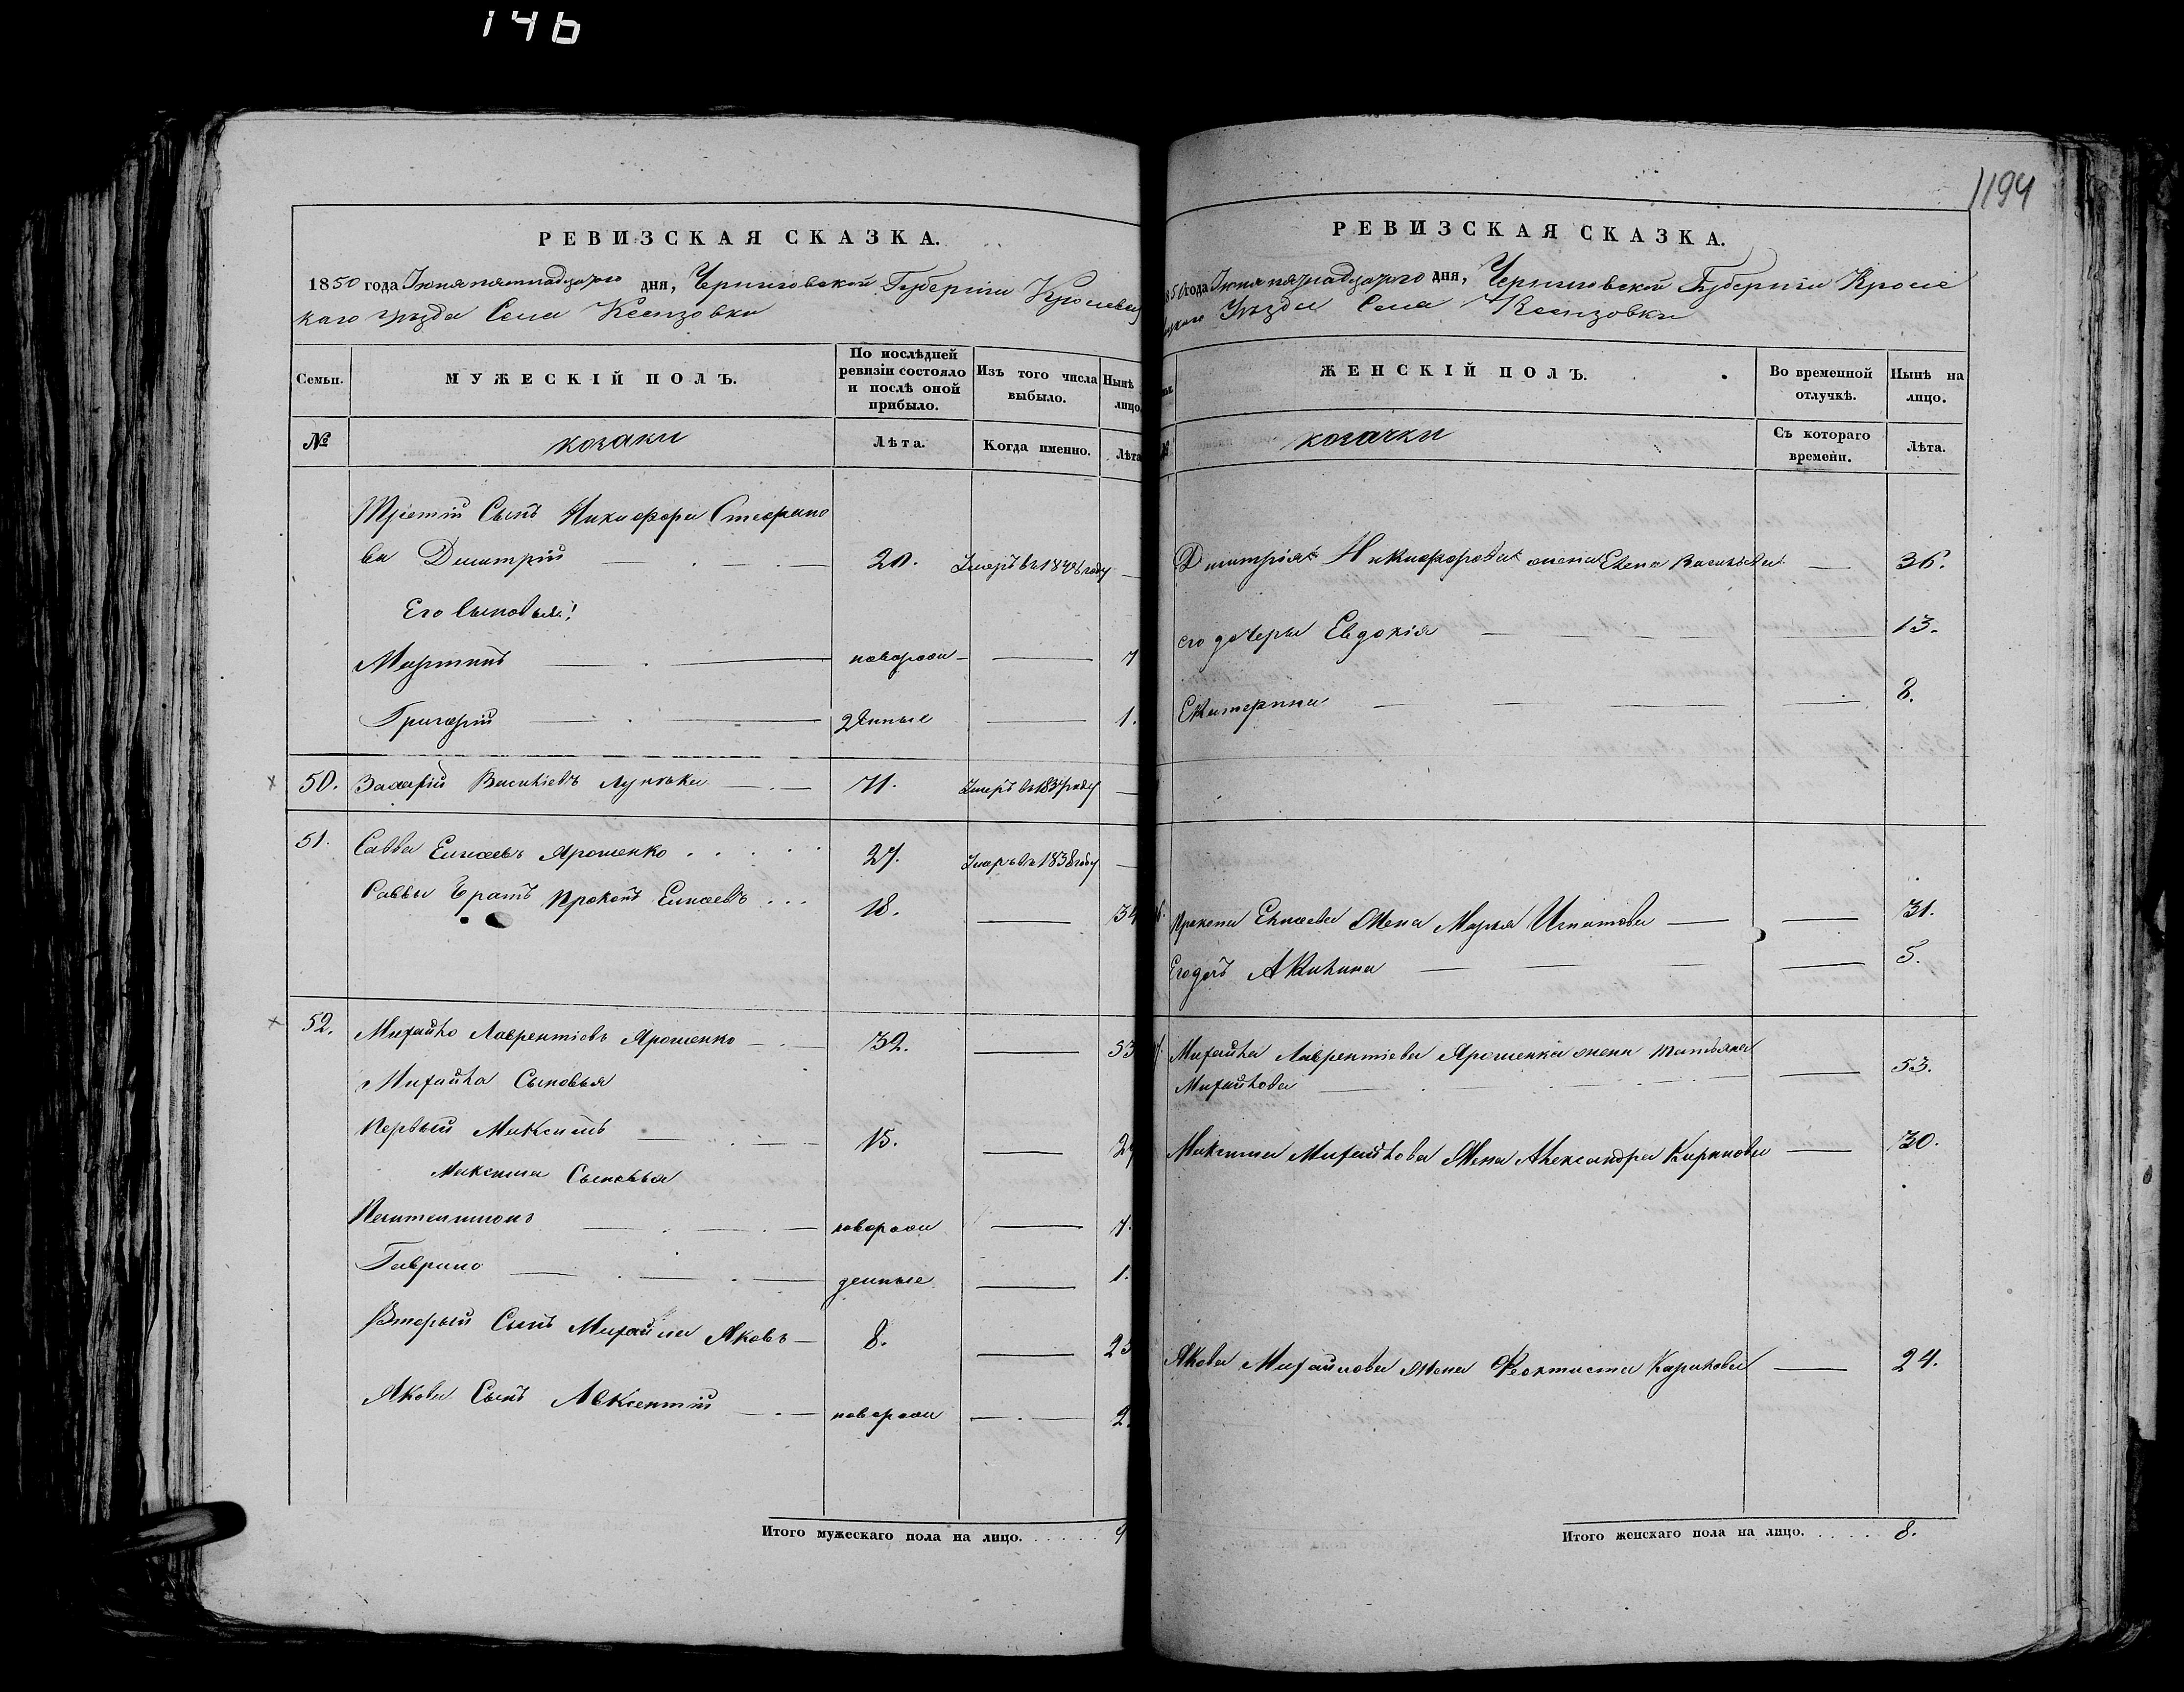 146
1194
РЕВИЗСКАЯ СКАЗКА.
1850 года Июня пятнадцатого дня, Черниговской Губернии Кролевец
каго уезда Села Ксензовки
Семьи. МУЖЕСКІЙ ПОЛЪ. По послѣдней ревизіи состояло и послѣ оной прибыло. Изъ того числа выбыло. Нынѣ лицо.
№ козаки Лѣта. Когда именно. Лѣта
Третій Сынъ Никифора Стефано
ва Дмитрій 20. Умеръ в 1848 году
Его Сыновья:
Мартинъ новорож 7
Григорій денные 1.
50. Захарій Василіевъ Лупѣка 71. Умеръ в 1837 году
51. Савва Елисеевъ Ярошенко 27. Умеръ в 1838 году
Саввы братъ Прокопъ Елисеевъ 18. 34
52. Михайло Лаврентіевъ Ярошенко 32. 53
Михайла Сыновья
Первый Максимъ 15. 29
Максима Сыновья
Пантелимонъ новорож 7.
Гаврило денные 1.
Вторый Сынъ Михайла Яковъ 8. 23
Якова Сынъ Авксентій новорож 2.
Итого мужескаго пола на лицо. 9
РЕВИЗСКАЯ СКАЗКА.
1850 года Июня пятнадцатого дня, Черниговской Губернии Кроле
вецкаго Уезда Села Ксензовки
ЖЕНСКІЙ ПОЛЪ. Во временной отлучкѣ. Нынѣ на лицо.
№ козачки Съ котораго времени. Лѣта.
Дмитрія Никифорова жена Елена Васильева 36.
его дочеры Евдокія 13.
Екатерина 8.
Прокопа Елисеева Жена Марья Игнатова 31.
Его дочъ Акилина 5.
Михайла Лаврентіева Ярошенка жена Татьяна
Михайлова 53.
Максима Михайлова Жена Александра Кирилова 30.
Якова Михайлова Жена Феоктиста Карпова 24.
Итого женскаго пола на лицо. 8.